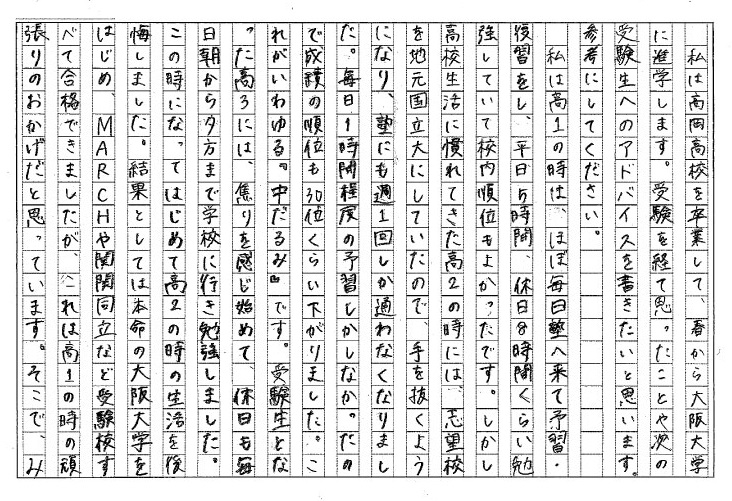 私は高岡高校を卒業して、春から大阪大学
に進学します。受験を経て思ったことや次の
受験生へのアドバイスを書きたいと思います。
参考にしてください。
私は高1の時は、ほぼ毎日塾へ来て予習・
復習をし、平日5時間、休日8時間くらい勉
強していて校内順位もよかったです。しかし
高校生活に慣れてきた高2の時には、志望校
を地元国立大にしていたので、手を抜くよう
になり、塾にも週1回しか通わなくなりまし
た。毎日1時間程度の予習しかしなかったの
で成績の順位も30位くらい下がりました。こ
れがいわゆる『中だるみ』です。受験生とな
った高3には、焦りを感じ始めて、休日も毎
日朝から夕方まで学校に行き勉強しました。
この時になってはじめて高2の時の生活を後
悔しました。結果としては本命の大阪大学を
はじめ、MARCHや関関同立など受験校す
べて合格できましたが、これは高1の時の頑
張りのおかげだと思っています。そこで、み